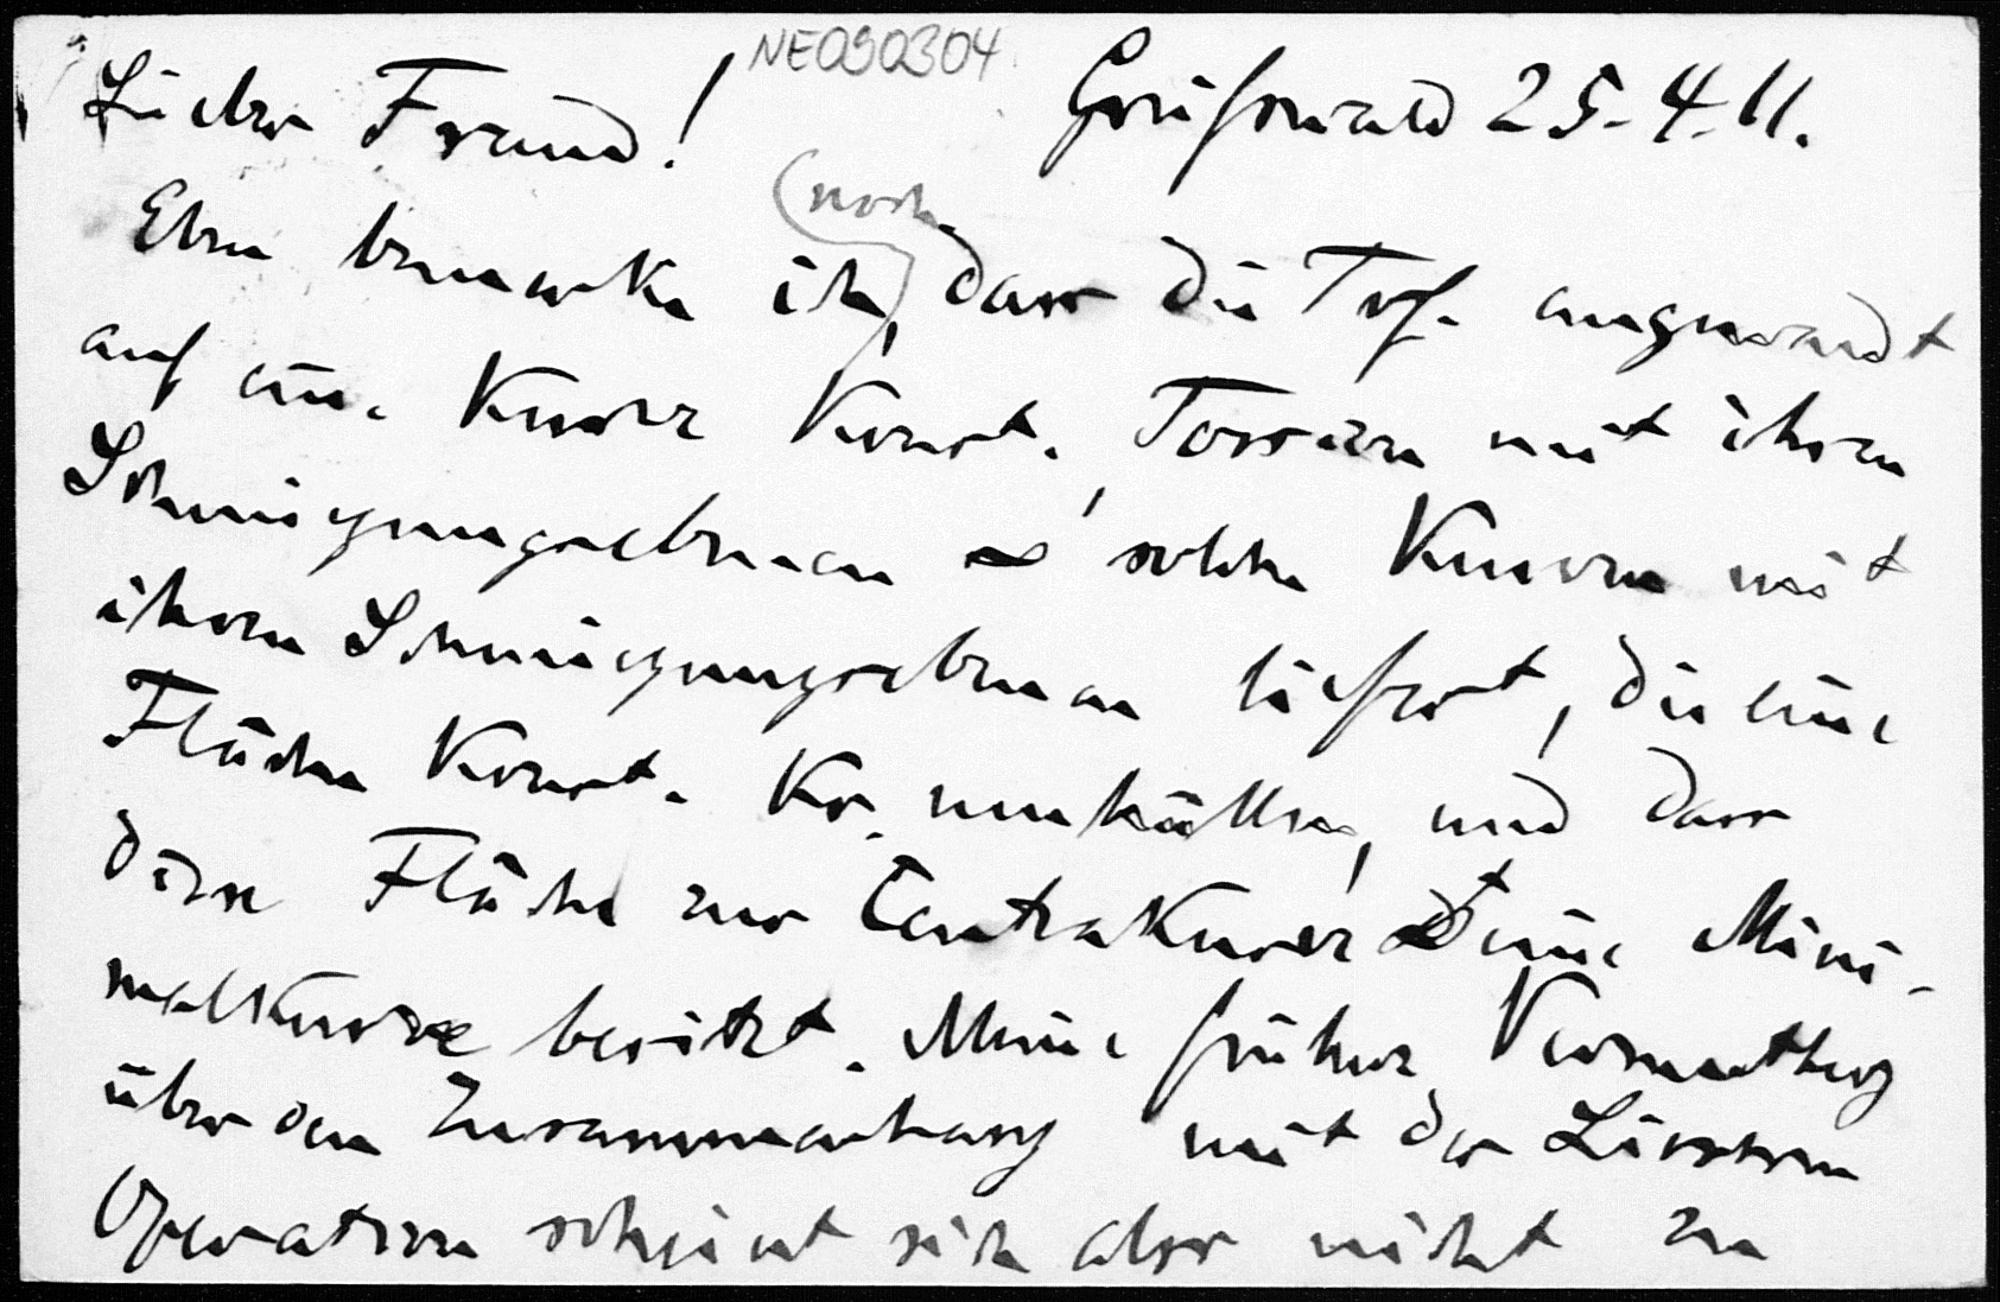 NE090304
Lieber Freund! Greifswald 25.4.11.
Eben bemerke ich, (noch) dass die Trf. angewandt
auf eine Kurve konst. Torsion mit ihren
Schmiegungsebenen solche Kurven mit
ihren Schmiegungsebenen liefert, die eine
Fläche konst. Kr. umhüllen, und dass
diese Fläche zur Centrakurve eine Mini-
malkurve besitzt. Meine frühere Vermuthung
über den Zusammenhang mit der Lieschen
Operation scheint sich also nicht zu